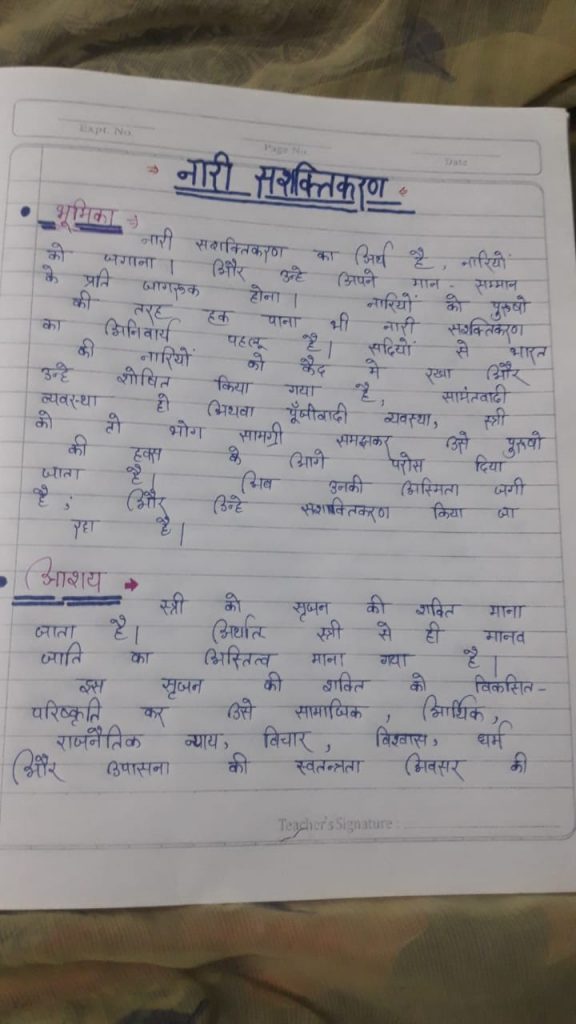 Expt. No.
Page No.
Date
नारी सशक्तिकरण
भूमिका
नारी सशक्तिकरण का अर्थ है, नारियों
को जगाना। और उन्हे अपने मान - सम्मान
के प्रति जागरूक होना। नारियों को पुरुषो
की तरह हक पाना भी नारी सशक्तिकरण
का अनिवार्य पहलू है। सदियों से भारत
की नारियों को कैद मे रखा और
उन्हे शोषित किया गया है, सामंतवादी
व्यवस्था हो अथवा पूँजीवादी व्यवस्था, स्त्री
को तो भोग सामग्री समझकर उसे पुरुषो
की हवस के आगे परोस दिया
जाता है। अब उनकी अस्मिता जगी
है; और उन्हे सशक्तिकरण किया जा
रहा है।
आशय
स्त्री को सृजन की शक्ति माना
जाता है। अर्थात स्त्री से ही मानव
जाति का अस्तित्व माना गया है।
इस सृजन की शक्ति को विकसित-
परिष्कृति कर उसे सामाजिक, आर्थिक,
राजनैतिक न्याय, विचार, विश्वास, धर्म
और उपासना की स्वतन्त्रता अवसर की
Teacher's Signature :